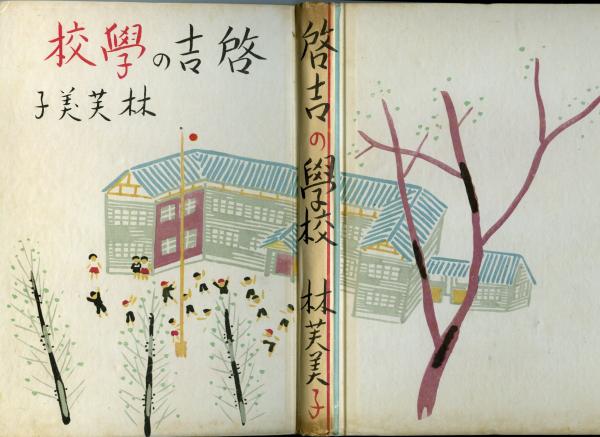 啓吉の學校
林芙美子
啓吉の學校
林芙美子